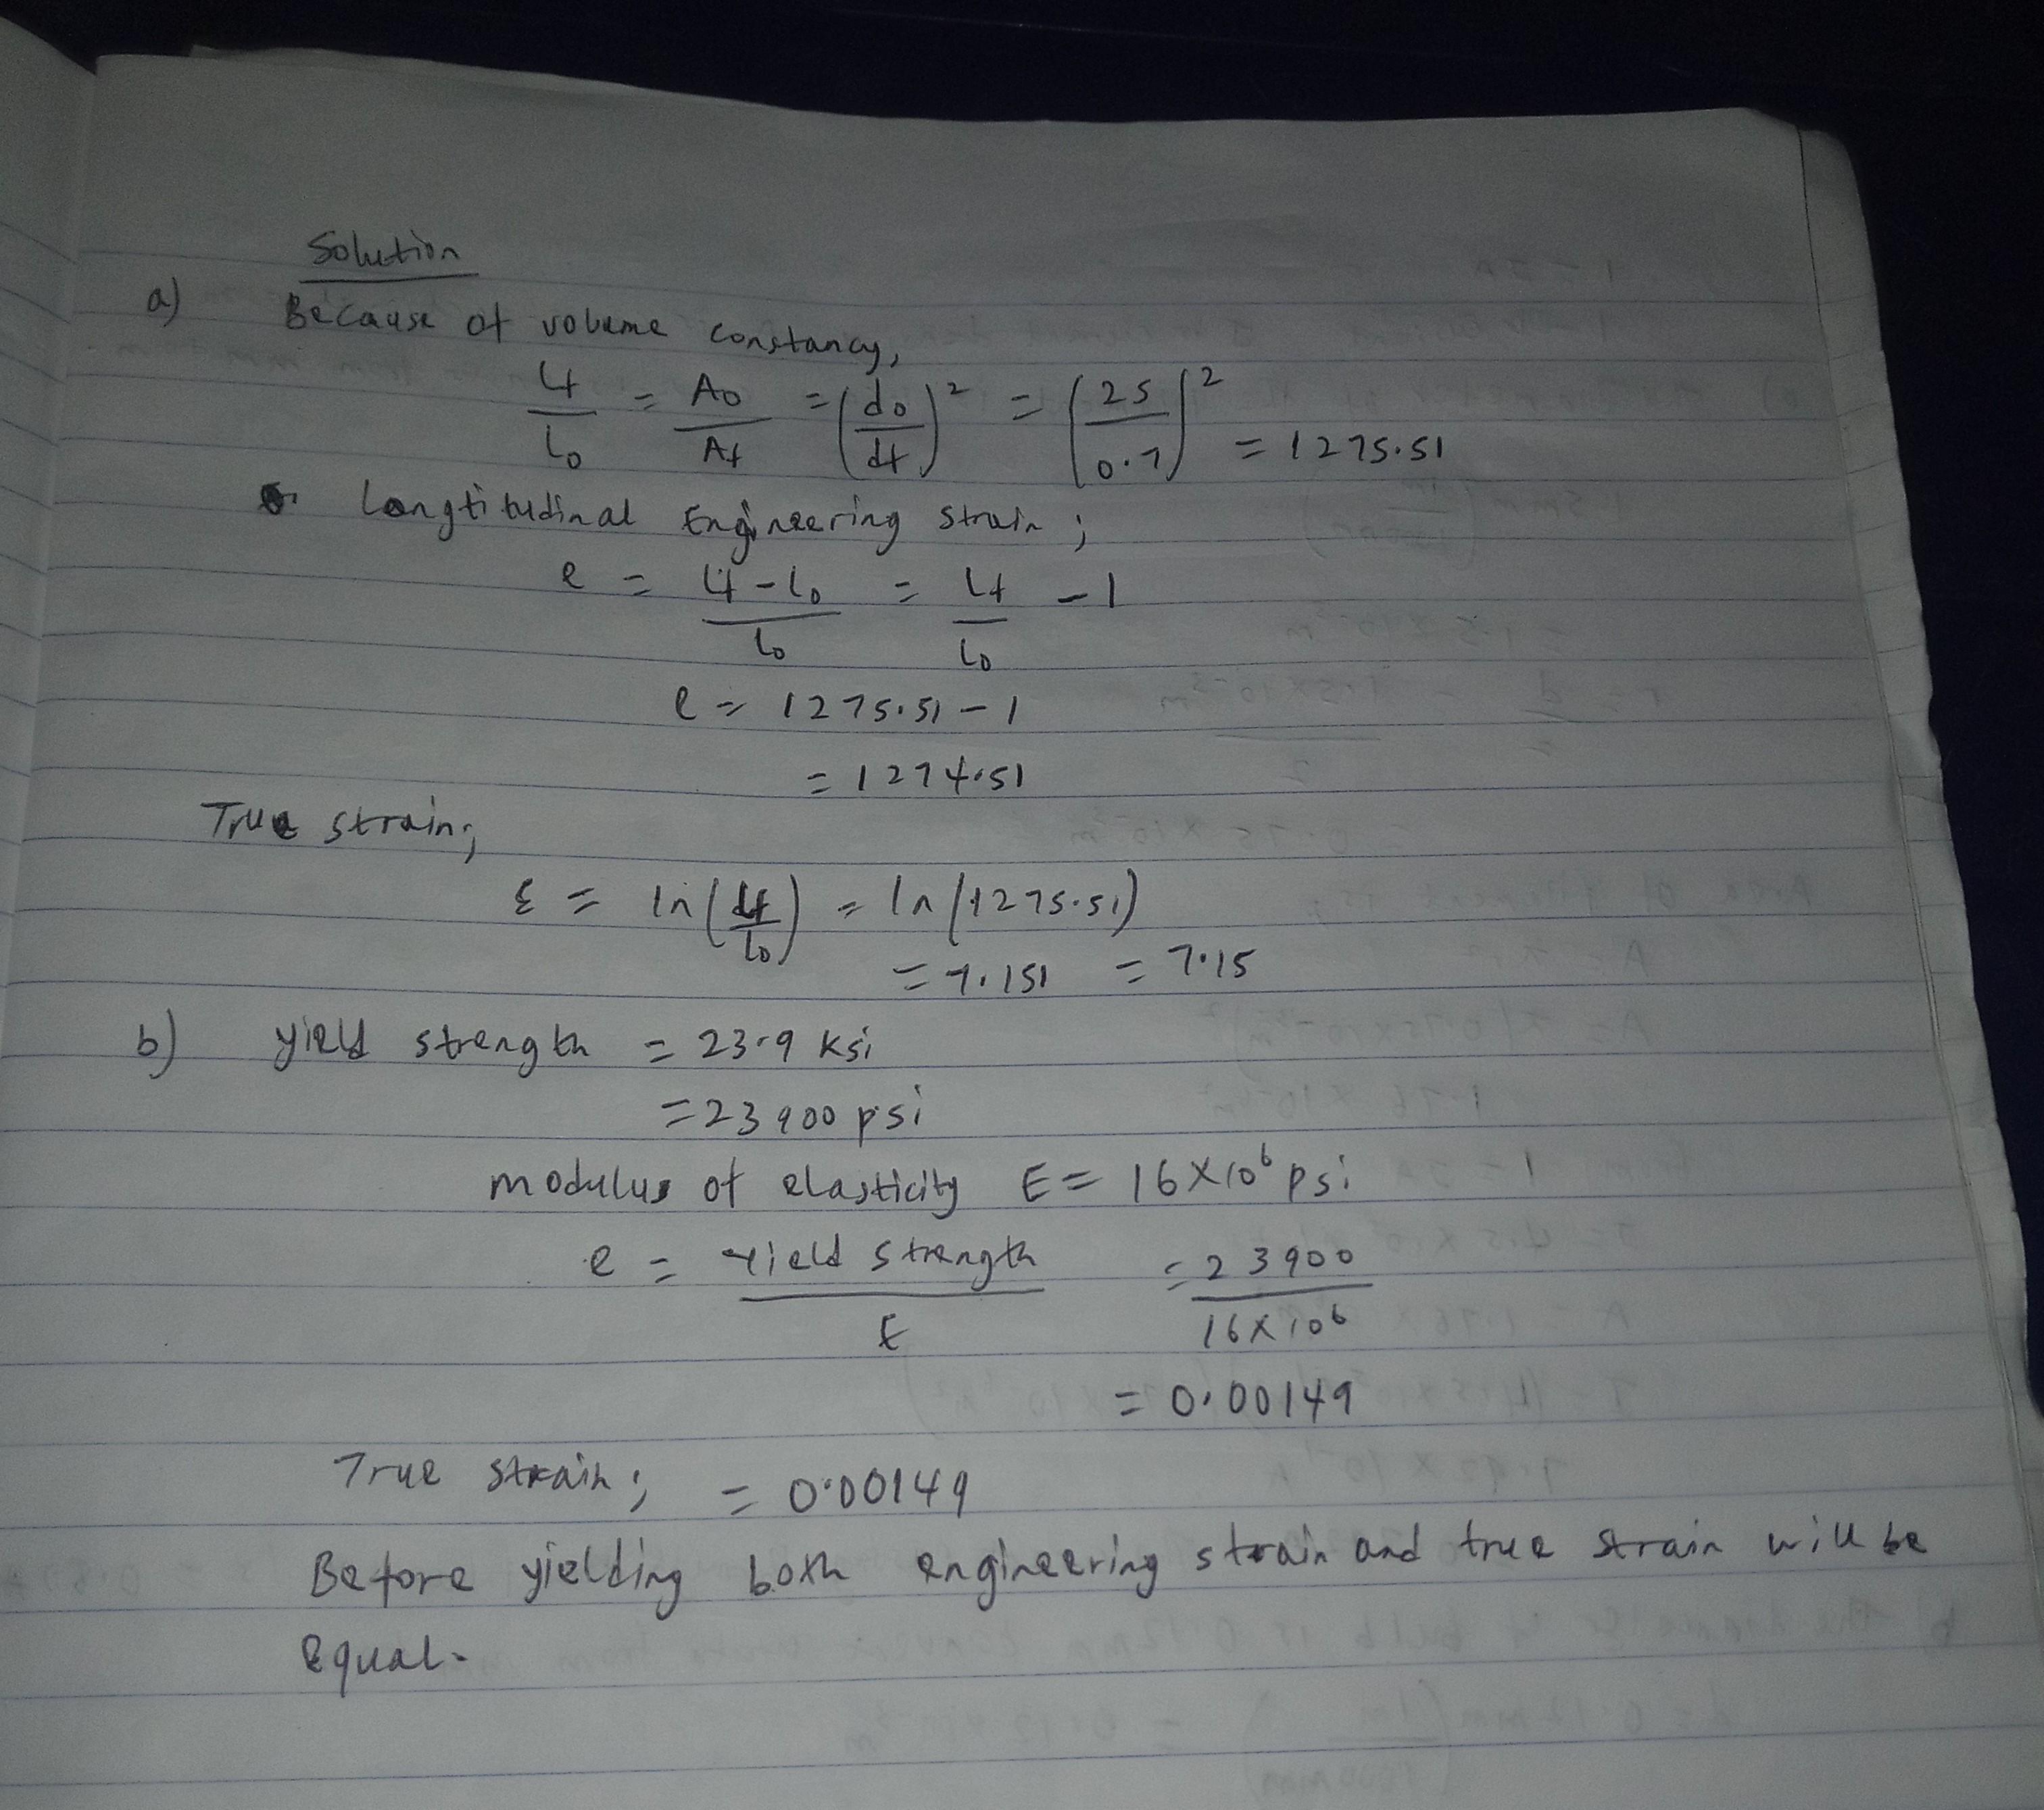 Solution
a) Because of volume constancy,
lf/lo = Ao/Af = (do/df)² = (25/0.7)² = 1275.51
Longtitudinal Engineering strain;
e = lf-lo/lo = lf/lo - 1
e = 1275.51 - 1
= 1274.51
True strain;
ε = ln(lf/lo) = ln(1275.51)
= 7.151 = 7.15
b) yield strength = 23.9 ksi
= 23900 psi
modulus of elasticity E = 16×10⁶ psi
e = yield strength/E = 23900/16×10⁶
= 0.00149
True strain; = 0.00149
Before yielding both engineering strain and true strain will be
equal.